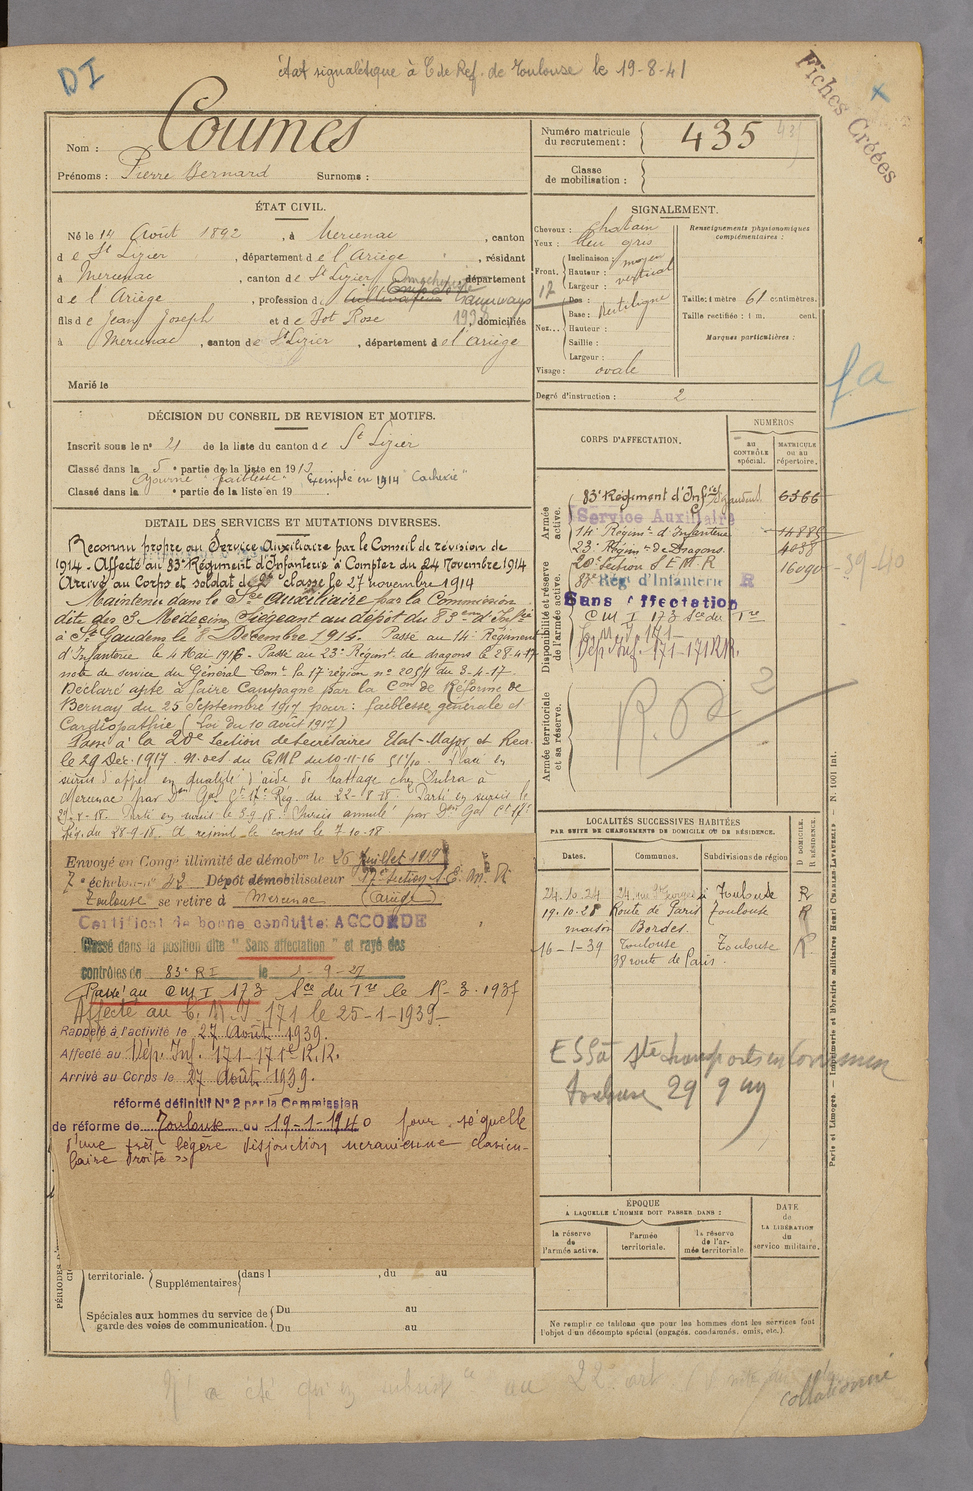 DI
état signalétique à C de Ref. de Toulouse le 19-8-41
Fiches Créées
Nom : Coumes
Prénoms : Pierre Bernard Surnoms :
Numéro matricule du recrutement : 435
Classe de mobilisation :
ÉTAT CIVIL.
Né le 14 Août 1892, à Mercenac, canton
de St Lizier, département de l'Ariège, résidant
à Mercenac, canton de St Lizier, département
de l'Ariège, profession de Cultivateur tramways
1938
fils de Jean Joseph et de Bot Rose domiciliés
à Mercenac, canton de St Lizier, département de l'Ariège
Marié le
SIGNALEMENT.
Cheveux : chatain
Yeux : bleu gris
Front. Inclinaison : moyen
Hauteur : vertical
Largeur :
Nez... Dos : rectiligne
Base :
Hauteur :
Saillie :
Largeur :
Visage : ovale
Renseignements physionomiques complémentaires :
Taille : 1 mètre 61 centimètres.
Taille rectifiée : 1 m. cent.
Marques particulières :
Degré d'instruction : 2
DÉCISION DU CONSEIL DE REVISION ET MOTIFS.
Inscrit sous le n° 21 de la liste du canton de St Lizier
Classé dans la 5e partie de la liste en 1913
Ajourné "faiblesse" Exempté en 1914 "Cachexie"
Classé dans la e partie de la liste en 19
DETAIL DES SERVICES ET MUTATIONS DIVERSES.
Reconnu propre au Service Auxiliaire par le Conseil de révision de
1914 - Affecté au 83e Régiment d'Infanterie à Compter du 24 Novembre 1914
Arrivé au Corps et soldat de 2e classe le 27 novembre 1914
Maintenu dans le Sce Auxiliaire par la Commission
dite des 3 Médecins siégeant au dépôt du 83ème d'Infrie
à St Gaudens le 8 Décembre 1915. Passé au 14e Régiment
d'Infanterie le 4 Mai 1916 - Passé au 23e Régimt de dragons le 28-4-17
note de service du Général Comt la 17e région n° 2054 du 3-4-17
Déclaré apte à faire Campagne par la Con de Réforme de
Bernay du 25 Septembre 1917 pour : faiblesse générale et
Cardiopathie (Loi du 10 août 1917)
Passé à la 20e Section de secrétaires Etat-Major et Recr.
le 29 Déc. 1917. N. des du GMP du 10-11-16 Placé en
sursis d'appel en qualité d'aide de battage chez Dutra à
Mercenac par Don Gal Ct 17e Rég. du 22-8-18. Parti en sursis le
Sursis annulé par Don Gal Ct 17e
Rég. du 28-9-18. A rejoint le corps le 7-10-18
Envoyé en Congé illimité de démobon le 26 Juillet 1919
7e échelon n° 42 Dépôt démobilisateur 17e Section S.E.M.R
Toulouse se retire à Mercenac (Ariège)
Certificat de bonne conduite: ACCORDE
Classé dans la position dite "Sans affectation" et rayé des
contrôles du 83e RI le 1-9-27
Passé au CMI 173 Sce du Tre le 12-3-1937
Affecté au C.M.I. 171 le 25-1-1939
Rappelé à l'activité le 27 Août 1939.
Affecté au Dép. Inf. 171-171e R.R.
Arrivé au Corps le 27 Août 1939.
réformé définitif N° 2 par la Commission
de réforme de Toulouse du 19-1-1940 pour séquelle
d'une très légère disjonction acromienne clavicu-
laire droite »
CORPS D'AFFECTATION.
NUMÉROS
au CONTRÔLE spécial.
MATRICULE ou au répertoire.
Armée active.
83e Régiment d'Infrie St Gaudens 6366
Service Auxiliaire
14e Régimt d'Infanterie 14885
23e Régimt de Dragons 4038
Disponibilité et réserve de l'armée active.
20e Section S E M R 16090 - 39-40
83e Régt d'Infanterie R
Sans affectation
C M I 173 Sce du Tre
Dép. Inf. 171-171 R.R.
Armée territoriale et sa réserve.
LOCALITÉS SUCCESSIVES HABITÉES
PAR SUITE DE CHANGEMENTS DE DOMICILE OU DE RÉSIDENCE.
Dates. Communes. Subdivisions de région
D DOMICILE. R RÉSIDENCE.
24.10.24 Toulouse R
19.10.28 Route de Paris Toulouse R
maison Bordes.
16-1-39 Toulouse Toulouse R.
38 route de Paris.
Sté transports en Commun
Toulouse 29 9
ÉPOQUE
A LAQUELLE L'HOMME DOIT PASSER DANS :
la réserve de l'armée active.
l'armée territoriale.
la réserve de l'armée territoriale.
DATE de LA LIBÉRATION du service militaire.
Ne remplir ce tableau que pour les hommes dont les services font
l'objet d'un décompte spécial (engagés, condamnés, omis, etc.).
territoriale. Supplémentaires dans l , du au
Spéciales aux hommes du service de garde des voies de communication. Du au
Du au
Paris et Limoges. — Imprimerie et librairie militaires Henri CHARLES-LAVAUZELLE — N. 1001 Int.
collationné